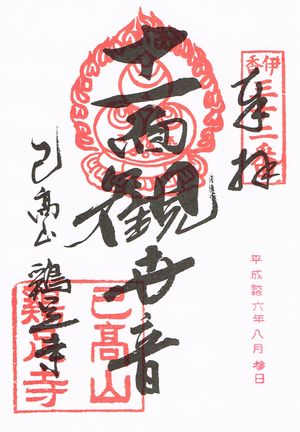 伊香
奉拝
平成
六年八月
日
十一面観世音
己高山 鶏足寺
己高山
鶏足寺